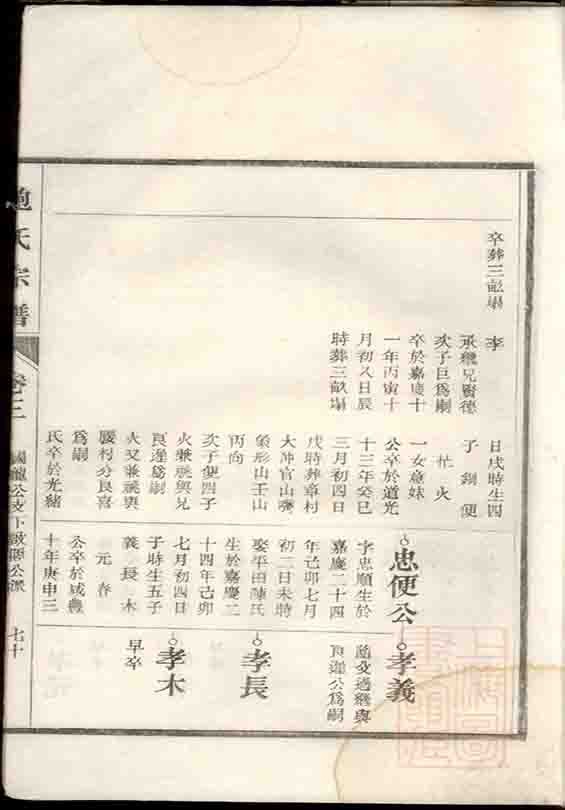 卒葬三畝塌
李
承繼兄賢德
次子巨爲嗣
卒於嘉慶十
一年丙寅十
月初八日辰
時葬三畝塌
日戌時生四
子 釗 便
忙 火
一女愈妹
公卒於道光
十三年癸巳
三月初四日
戌時葬章村
大冲官山灣
象形山壬山
丙向
次子便四子
火兼祧與兄
良進爲嗣
火又兼祧與
嚴村分良喜
爲嗣
氏卒於光緒
忠便公
字忠順生於
嘉慶二十四
年己卯七月
初二日未時
娶平田陳氏
生於嘉慶二
十四年己卯
七月初四日
子時生五子
義 長 木
元 春
公卒於咸豐
十年庚申三
孝義
隨父過繼與
良進公爲嗣
孝長
孝木
早卒
趙氏宗譜
卷三
國龍公支下啟賜公派
七十